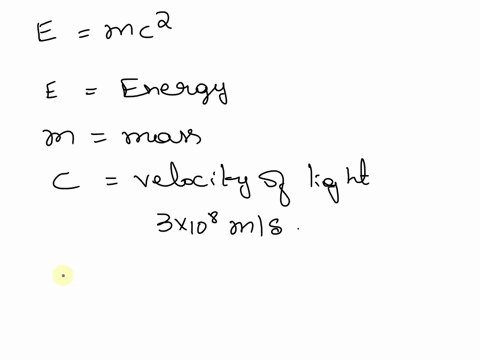 E = mc²
E = Energy
m = mass
C = velocity of light
3×10⁸ m/s.